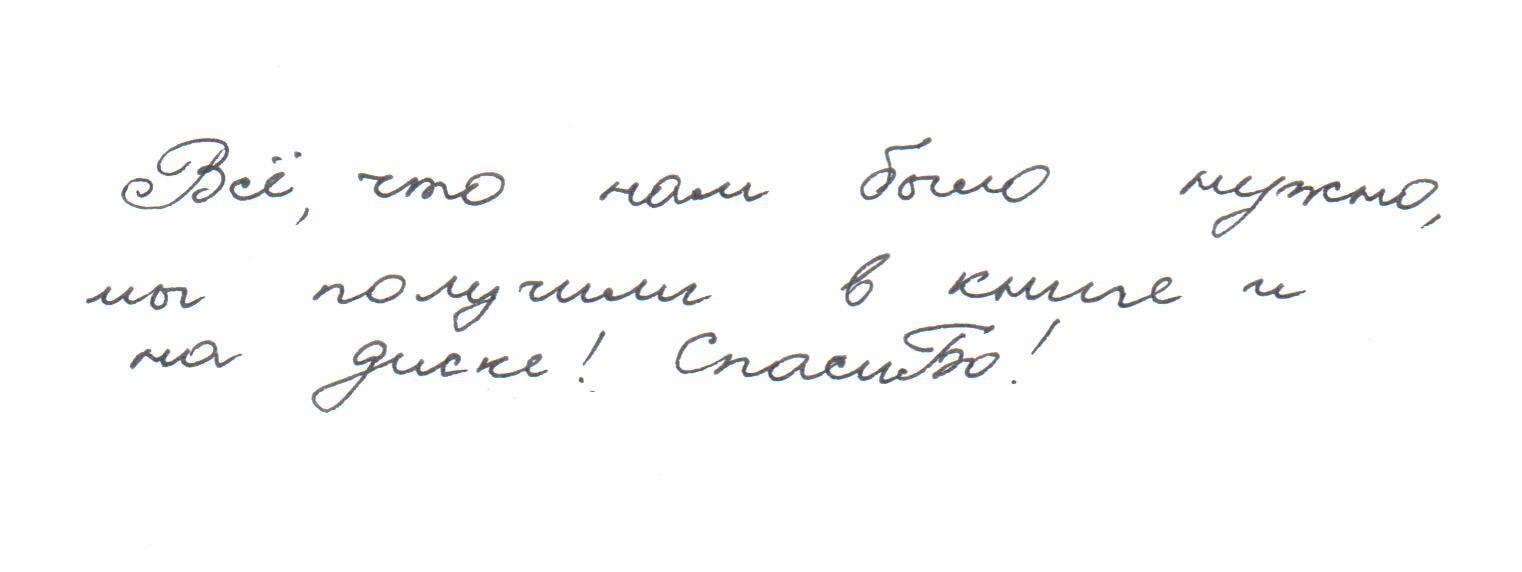 Всё, что нам было нужно,
мы получили в книге и
на диске! СпасиБо!